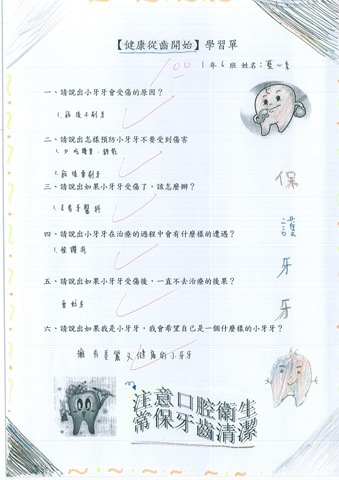 【健康從齒開始】學習單
100
1年6班 姓名:
一、請說出小牙牙會受傷的原因?
1.飯後不刷牙
二、請說出怎樣預防小牙牙不要受到傷害
1.少吃糖果、餅乾
2.飯後要刷牙
三、請說出如果小牙牙受傷了,該怎麼辦?
1.去看牙醫師
四、請說出小牙牙在治療的過程中會有什麼樣的遭遇?
五、請說出如果小牙牙受傷後,一直不去治療的後果?
會蛀牙
六、請說出如果我是小牙牙,我會希望自己是一個什麼樣的小牙牙?
擁有美麗又健康的小牙牙
保
護
牙
牙
注意口腔衛生
常保牙齒清潔